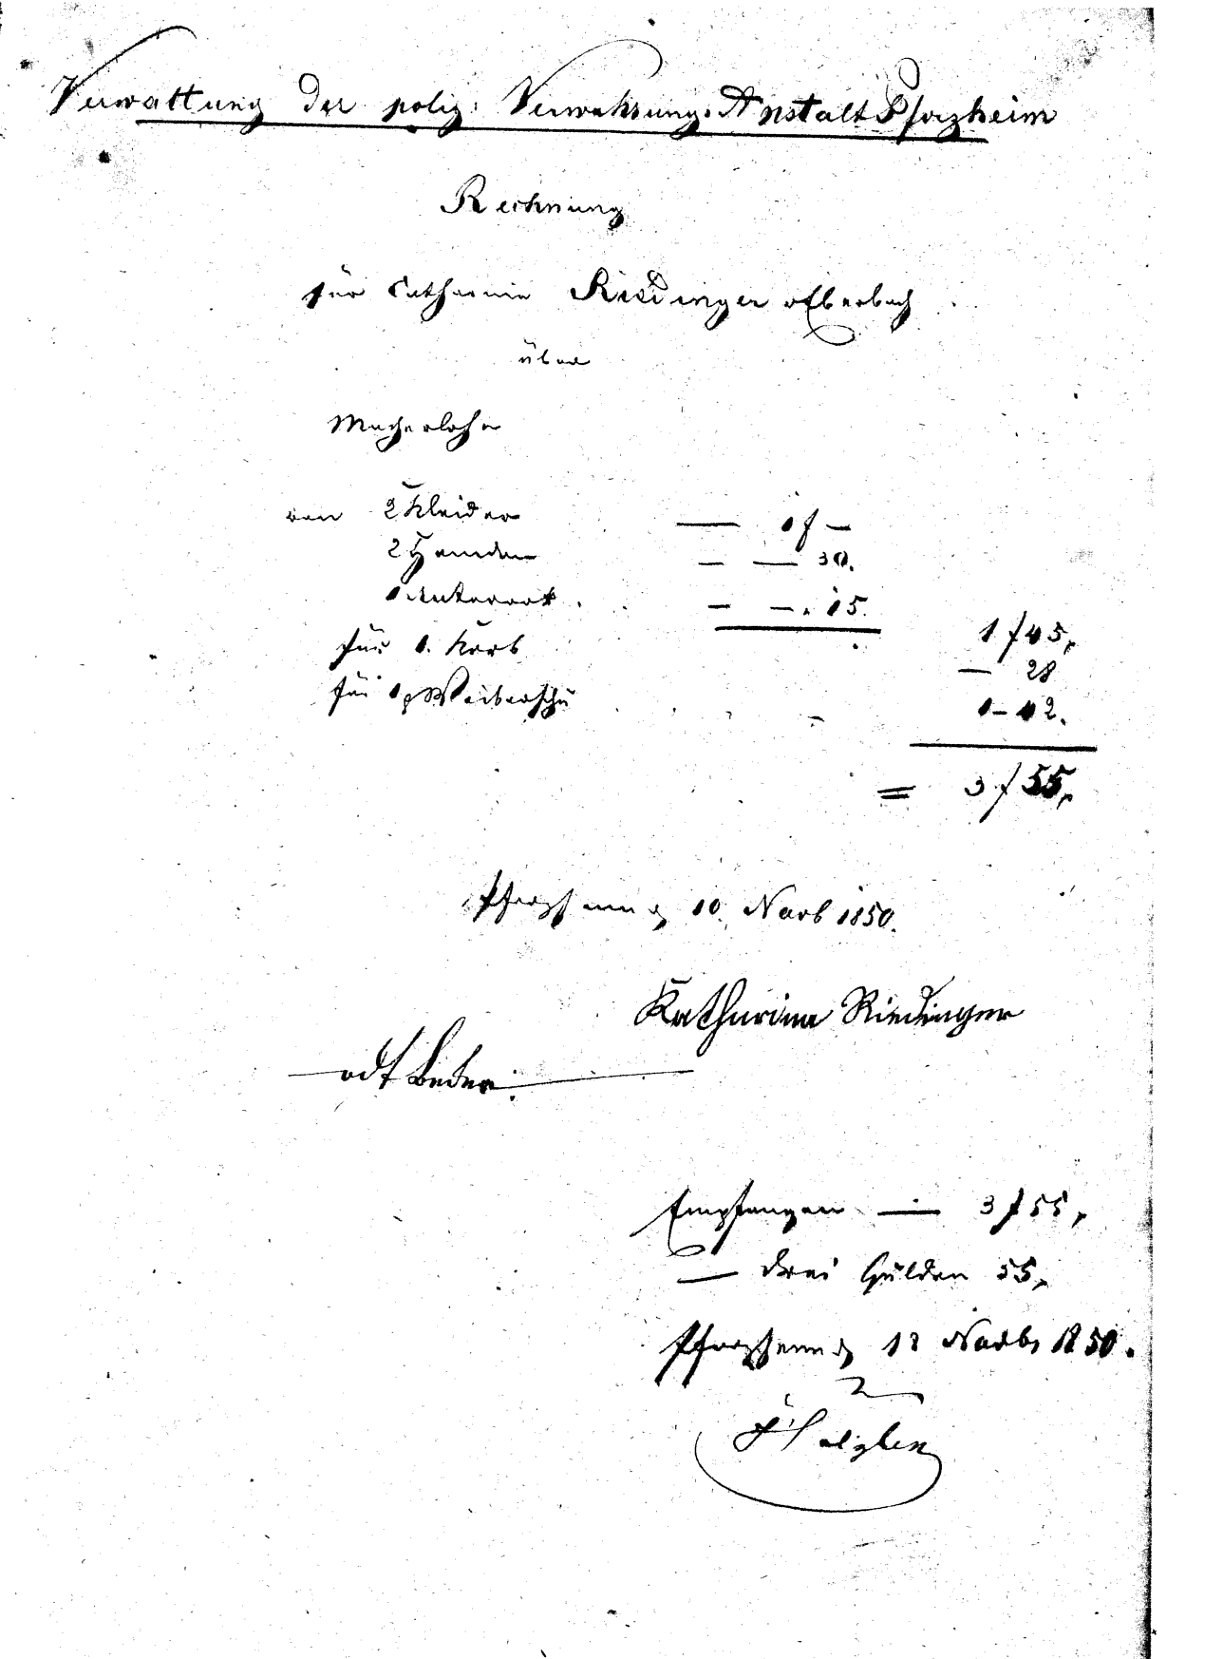 Verwaltung der poliz: Verwahrungs-Anstalt Pforzheim
Rechnung
für Catharina Riedinger v Eberbach
über
Macherlohn
von 2 Kleider — 1 f —
2 Hemden — — 30.
1 Unterrock. — —. 15.
1 f 45,
für 1. Korb — 28
für 1 p Weiberschu 1 — 42.
= 3 f 55,
Pforzheim d 10. Novb 1850.
Katharina Riedinger
Empfangen — 3 f 55,
— drei Gulden 55,
Pforzheim d 12 Novbr 1850.